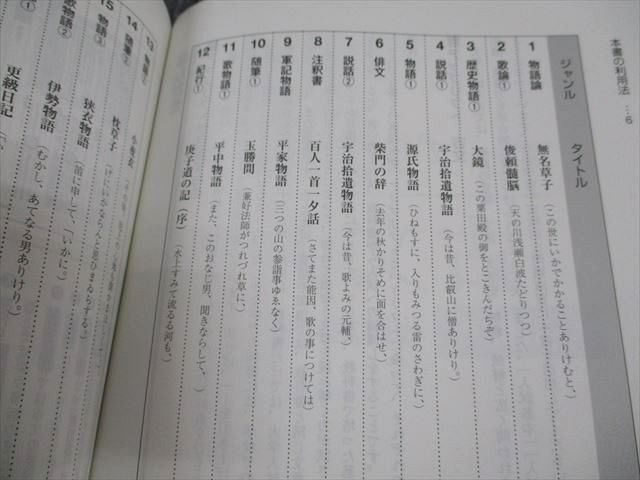 本書の利用法 …6
ジャンル タイトル
1 物語論 無名草子（この世にいかでかかることありけむと、）
2 歌論① 俊頼髄脳（天の川浅瀬白波たどりつつ）
3 歴史物語① 大鏡（この粟田殿の御をとこきんだちぞ）
4 説話① 宇治拾遺物語（今は昔、比叡山に僧ありけり。）
5 物語① 源氏物語（ひねもすに、入りもみつる雷のさわぎに、）
6 俳文 柴門の辞（去年の秋かりそめに面を合はせ、）
7 説話② 宇治拾遺物語（今は昔、歌よみの元輔、）
8 注釈書 百人一首一夕話（さてまた能因、歌の事につけては）
9 軍記物語 平家物語（三つの山の参詣事ゆゑなく）
10 随筆① 玉勝間（兼好法師がつれづれ草に、）
11 歌物語① 平中物語（また、このおなじ男、聞きならして、）
12 紀行① 庚子道の記（序）（水上すみて流るる河も、）
13
14 随筆② 枕草子（けにいかならんと思ひまゐらする）
15 物語③ 狭衣物語（笛に申して、「いかに」
歌物語② 伊勢物語（むかし、あてなる男ありけり。）
① 更級日記